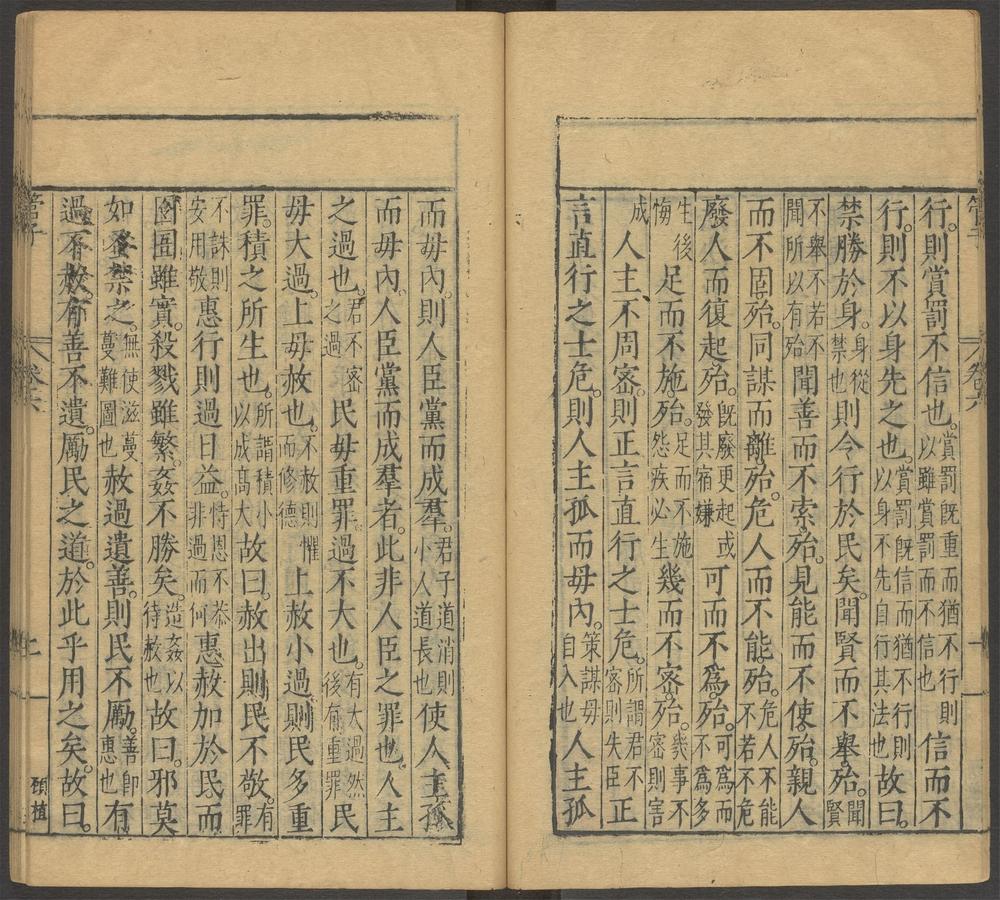 管子
卷六
十一
行。則賞罰不信也。賞罰既重而猶不行則以雖賞罰而不信也信而不
行。則不以身先之也。賞罰既信而猶不行則以身不先自行其法也故曰。
禁勝於身。身從禁也則令行於民矣。聞賢而不舉。殆。聞賢
不舉不若不聞所以有殆聞善而不索。殆。見能而不使。殆。親人
而不固。殆。同謀而離。殆。危人而不能。殆。危人不能不若不危
廢人而復起。殆。既廢更起或發其宿嫌可而不為。殆。可為而不為多
生後悔足而不施。殆。足而不施怨疾必生幾而不密。殆。幾事不密則害
成人主不周密。則正言直行之士危。所謂君不密則失臣正
言直行之士危。則人主孤而毋內。策謀毋自入也人主孤
而毋內。則人臣黨而成羣。君子道消則小人道長也使人主孤
而毋內。人臣黨而成羣者。此非人臣之罪也。人主
之過也。君不密之過民毋重罪。過不大也。有大過然後有重罪民
毋大過。上毋赦也。不赦則懼而修德上赦小過。則民多重
罪。積之所生也。所謂積小以成高大故曰。赦出則民不敬。有罪
不誅則安用敬惠行則過日益。恃恩不恭非過而何惠赦加於民而
囹圄雖實。殺戮雖繁。姦不勝矣。造姦以待赦也故曰。邪莫
如蚤禁之。無使滋蔓蔓難圖也赦過遺善。則民不勵。善即惠也有
過不赦。有善不遺。勵民之道。於此乎用之矣。故曰。
管子
卷六
十一
顧植